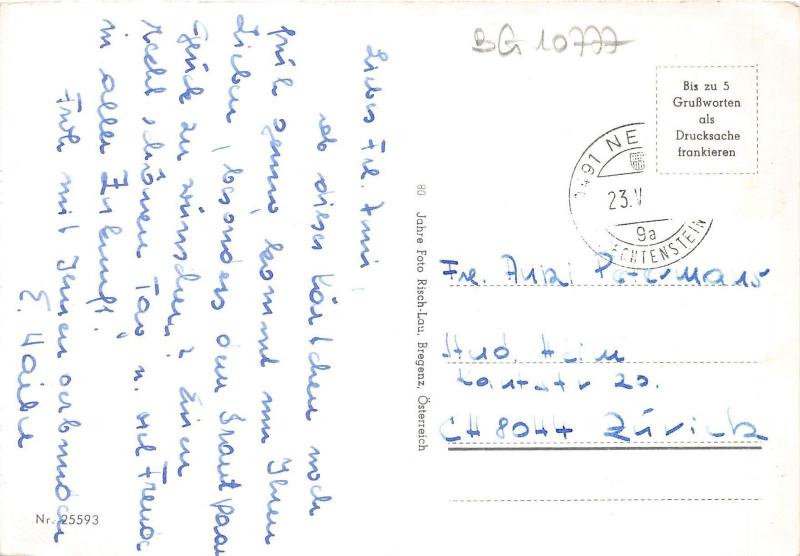 BG 10777
Bis zu 5
Grußworten
als
Drucksache
frankieren
9491 NE
23.V
9a
ECHTENSTEIN
Liebes Frl. Anni!
ob dieses Kärtchen noch
früh genug kommt um Ihnen
Lieben, besonders dem Brautpaar
Glück zu wünschen? Einen
recht schönen Tag u. viel Freude
in aller Zukunft.
Froh mit Ihnen verbunden
E.
80 Jahre Foto Risch-Lau, Bregenz, Österreich
Frl. Anni
Stud. Heim
20.
CH 8044 Zürich
Nr. 25593